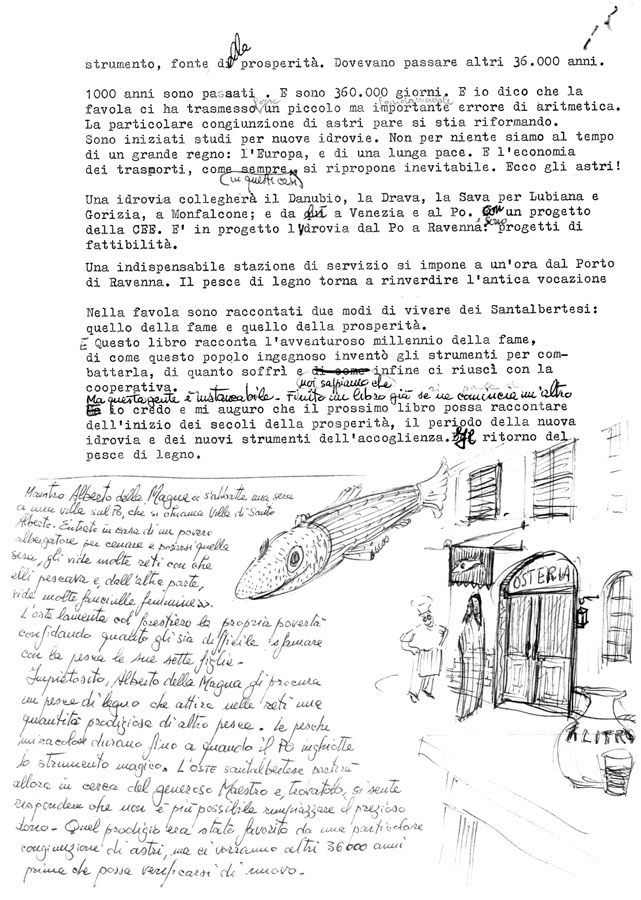 strumento, fonte della prosperità. Dovevano passare altri 36.000 anni.
1000 anni sono passati . E sono 360.000 giorni. E io dico che la
favola ci ha trasmesso un piccolo ma importante errore di aritmetica.
La particolare congiunzione di astri pare si stia riformando.
Sono iniziati studi per nuove idrovie. Non per niente siamo al tempo
di un grande regno: l'Europa, e di una lunga pace. E l'economia
dei trasporti, come sempre, si ripropone inevitabile. Ecco gli astri!
(in questi casi)
Una idrovia collegherà il Danubio, la Drava, la Sava per Lubiana e
Gorizia, a Monfalcone; e da a Venezia e al Po. un progetto
della CEE. E' in progetto l'idrovia dal Po a Ravenna. Sono progetti di
fattibilità.
Una indispensabile stazione di servizio si impone a un'ora dal Porto
di Ravenna. Il pesce di legno torna a rinverdire l'antica vocazione
Nella favola sono raccontati due modi di vivere dei Santalbertesi:
quello della fame e quello della prosperità.
E Questo libro racconta l'avventuroso millennio della fame,
di come questo popolo ingegnoso inventò gli strumenti per com-
batterla, di quanto soffrì e di come infine ci riuscì con la
cooperativa. noi sappiamo che
Ma questa gente è instancabile. Finito un libro già se ne comincia un'altro
io credo e mi auguro che il prossimo libro possa raccontare
dell'inizio dei secoli della prosperità, il periodo della nuova
idrovia e dei nuovi strumenti dell'accoglienza. Il ritorno del
pesce di legno.
Maestro Alberto della Magna s'abbatte una sera
a una villa sul Po, che si chiama Villa di Santo
Alberto. Entrato in casa di un povero
albergatore per cenare e posarsi quella
sera, gli vide molte reti con che
elli pescava e, dall'altra parte,
vide molte fanciulle femminesse.
L'oste lamenta col forestiero la propria povertà
confidando quanto gli sia difficile sfamare
con la pesca le sue sette figlie.
Impietosito, Alberto della Magna gli procura
un pesce di legno che attira nelle reti una
quantità prodigiosa di altro pesce. Le pesche
miracolose durano fino a quando il Po inghiotte
lo strumento magico. L'oste santalbertese partirà
allora in cerca del generoso Maestro e, trovatolo, si sente
rispondere che non è più possibile rimpiazzare il prezioso
dono. Quel prodigio era stato favorito da una particolare
congiunzione di astri, ma ci vorranno altri 36000 anni
prima che possa verificarsi di nuovo.
OSTERIA
A LITRO